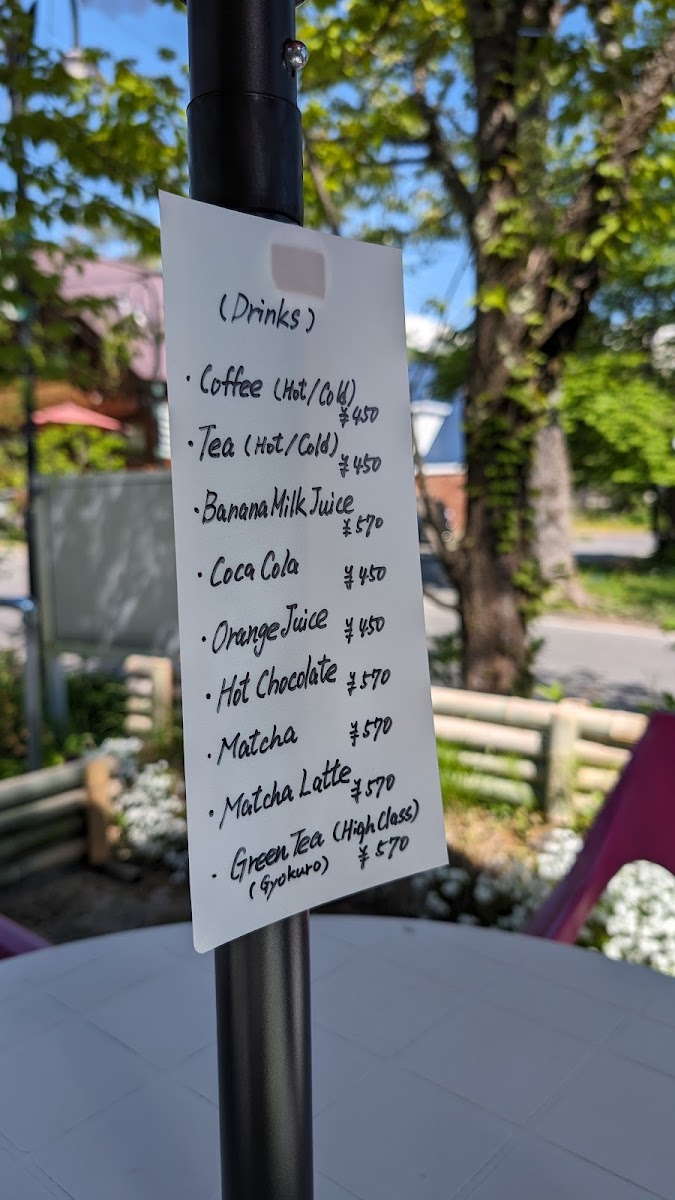 (Drinks)
・Coffee (Hot/Cold)
¥450
・Tea (Hot/Cold)
¥450
・Banana Milk Juice
¥570
・Coca Cola ¥450
・Orange Juice ¥450
・Hot Chocolate ¥570
・Matcha ¥570
・Matcha Latte ¥570
・Green Tea (High Class)
(Gyokuro) ¥570